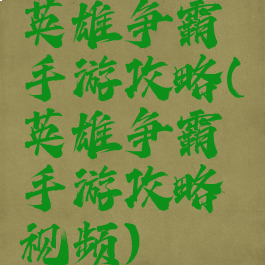 英雄争霸
手游攻略(
英雄争霸
手游攻略
视频)